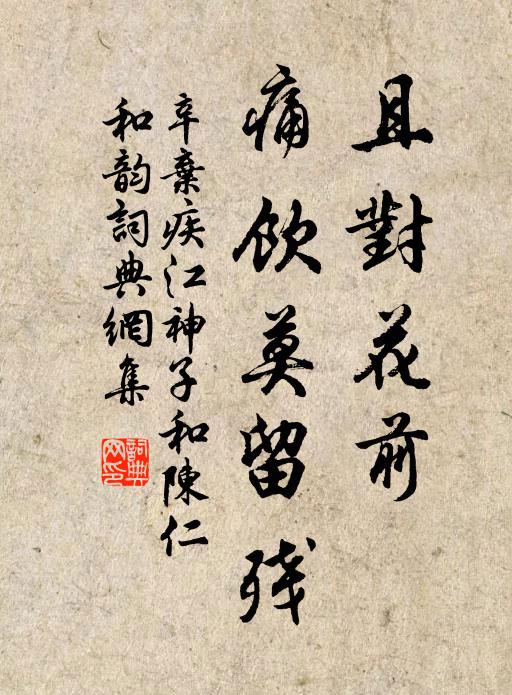 且對花前
痛飲莫留殘
辛棄疾江神子和陳仁
和韵詞典網集
詞典
网印